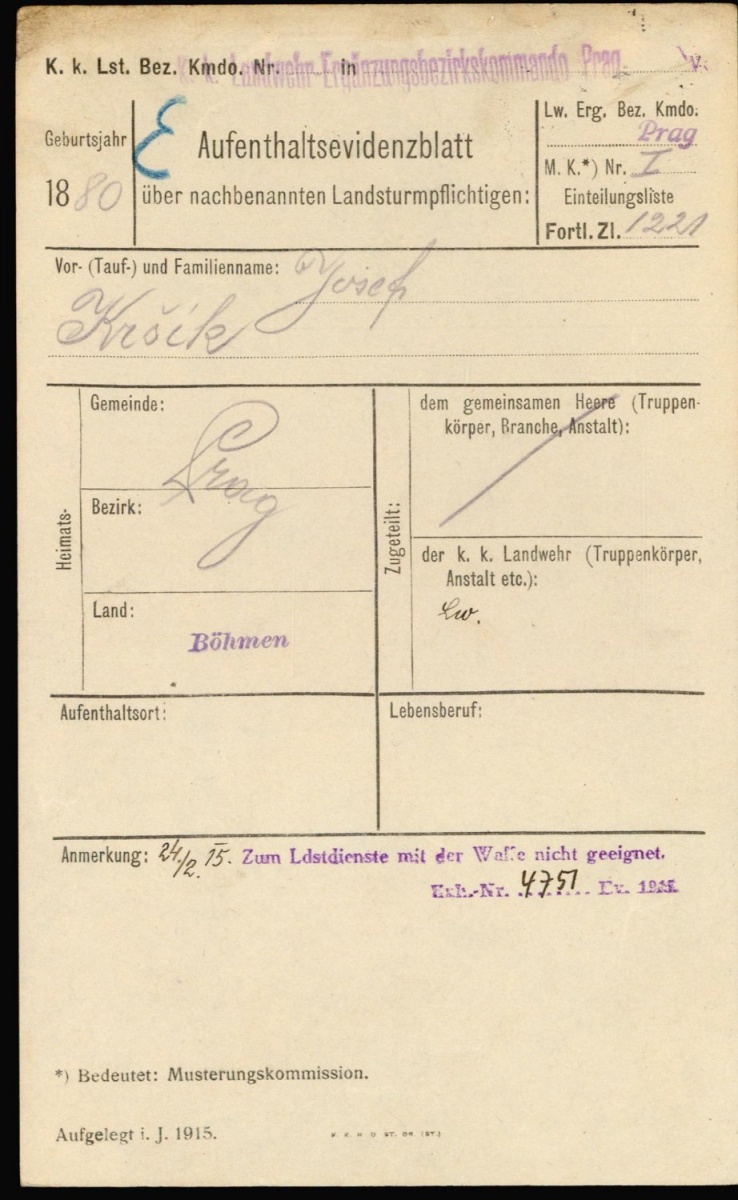 K. k. Lst. Bez. Kmdo. Nr. in
k. k. Landwehr-Ergänzungsbezirkskommando Prag
Geburtsjahr
1880
E
Aufenthaltsevidenzblatt
über nachbenannten Landsturmpflichtigen:
Lw. Erg. Bez. Kmdo.
Prag
M. K.*) Nr. I
Einteilungsliste
Fortl. Zl. 1221
Vor- (Tauf-) und Familienname: Josef
Kršik
Heimats-
Gemeinde:
Prag
Bezirk:
Land:
Böhmen
Zugeteilt:
dem gemeinsamen Heere (Truppen-
körper, Branche, Anstalt):
der k. k. Landwehr (Truppenkörper,
Anstalt etc.):
Lw.
Aufenthaltsort:
Lebensberuf:
Anmerkung: 24/2. 15. Zum Ldstdienste mit der Waffe nicht geeignet.
Exh.-Nr. 4751 Ev. 1915
*) Bedeutet: Musterungskommission.
Aufgelegt i. J. 1915.